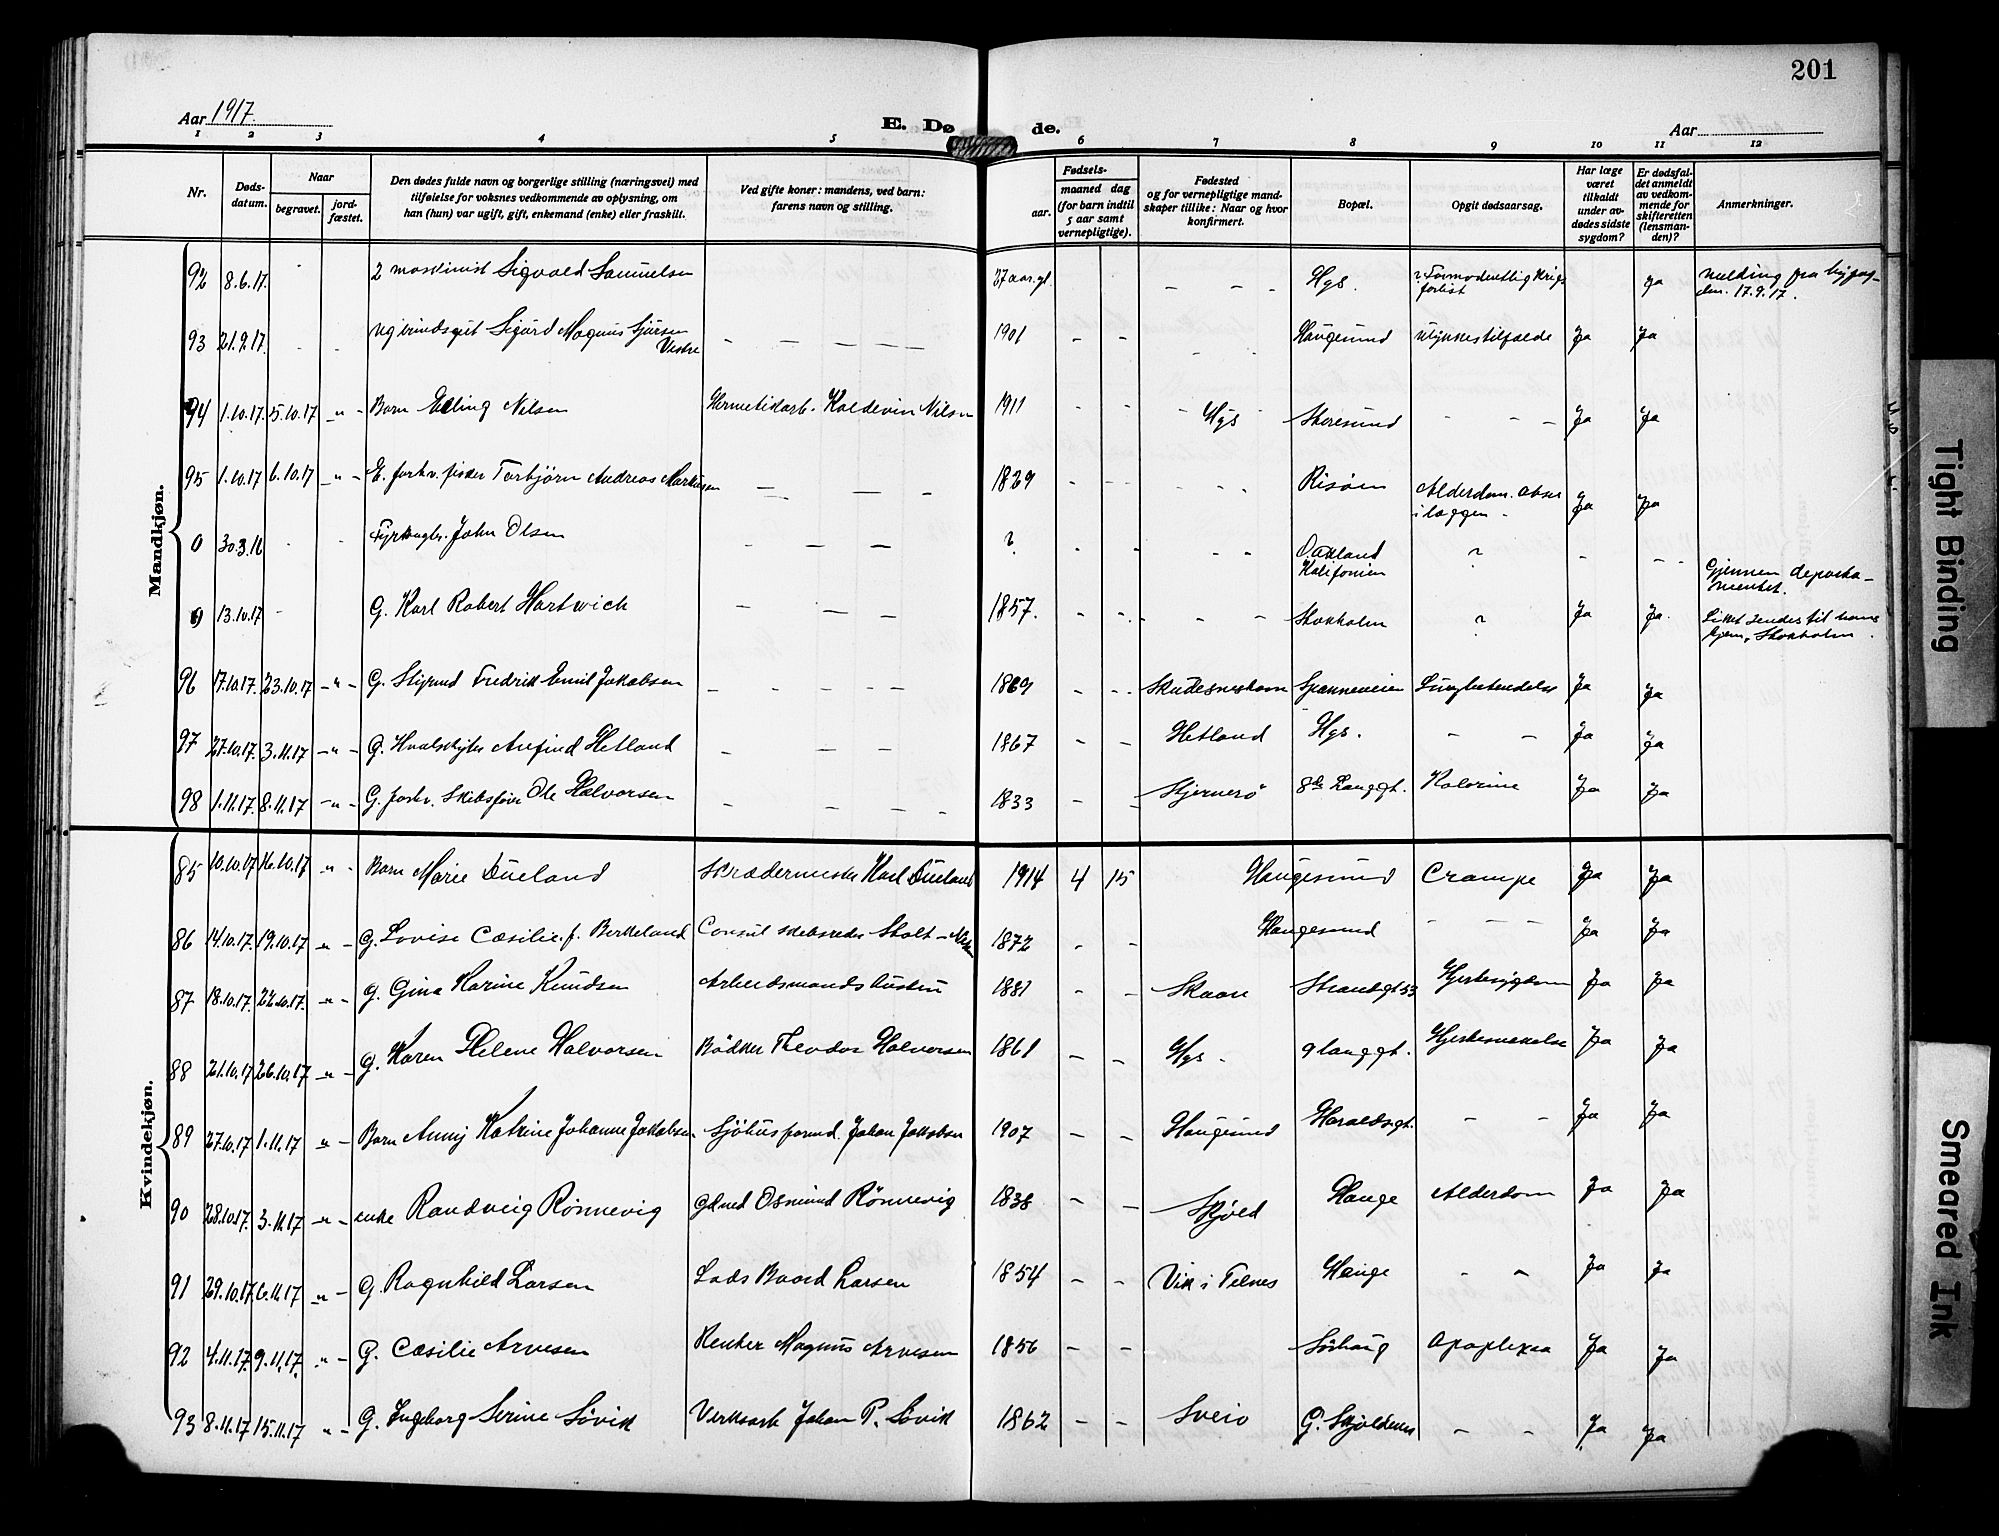 201
Aar 1917.
E. Dø de.
Aar
1 2 3 4 5 6 7 8 9 10 11 12
Nr.
Døds-
datum.
Naar
begravet.
jord-
fæstet.
Den dødes fulde navn og borgerlige stilling (næringsvei) med
tilføielse for voksnes vedkommende av oplysning, om
han (hun) var ugift, gift, enkemand (enke) eller fraskilt.
Ved gifte koner: mandens, ved barn:
farens navn og stilling.
Fødsels-
aar.
maaned dag
(for barn indtil
5 aar samt
vernepligtige).
Fødested
og for vernepligtige mand-
skaper tillike: Naar og hvor
konfirmert.
Bopæl.
Opgit dødsaarsag.
Har læge
været
tilkaldt
under av-
dødes sidste
sygdom?
Er dødsfal-
det anmeldt
av vedkom-
mende for
skifteretten
(lensman-
den)?
Anmerkninger.
Mandkjøn.
92 8.6.17. 2 maskinist Sigvald Samuelsen 37 aar gl. Hgs. ? Formodentlig krigs
forlist ja melding fra
17.9.17.
93 21.9.17. Sigurd Magnus Sjursen
Vestre 1901 Haugesund ulykkestilfælde Ja Ja
94 1.10.17 5.10.17 -"- Barn Elling Nilsen Hermetikarb. Haldevin Nilsen 1911 Hgs Storesund Ja Ja
95 1.10.17 6.10.17 -"- E. forhv. fisker Torbjørn Andreas Markusen 1829 Risøen Alderdom.
i læggen. Ja Ja
0 30.3.16 Fyrbøgter John Olsen ? Oakland
Kalifonien ?
Gjennem departe-
mentet.
0 13.10.17 G. Karl Robert Hartwich 1857. Stokholm ? Ja Ja. Liket sendes til hans
hjem, Stokholm.
96 17.10.17. 23.10.17 -"- G. Fredrik Emil Jakobsen 1869 Skudesneshavn Spanneveien Lungbetendelse Ja Ja
97 27.10.17. 3.11.17 -"- G. Arefind Hetland 1867 Hetland Hgs. Ja Ja
98 1.11.17. 8.11.17 -"- G. forhv. Skibsfører Ole Halvorsen 1833 Stjernerø 8de Langgt. Kolerine Ja Ja
Kvindekjøn.
85 10.10.17 16.10.17 "- Barn Marie Dueland Skrædermester Karl Dueland 1914 4 15 Haugesund Crampe Ja Ja
86 14.10.17. 19.10.17 -"- G. Lovise Cæsilie f. Berkeland Consul skibsreder Stolt-Nilsen 1872 Haugesund Ja Ja
87 18.10.17. 22.10.17. -"- G. Gina Karine Knudsen Arbeidsmands hustru 1881 Skaare Strandgt 53 Hjertesygdom Ja Ja
88 21.10.17 26.10.17 -"- G. Karen Helene Halvorsen Bødker Theodor Halvorsen 1861 Hgs. 9 langgt. Hjertesvækelse Ja Ja
89 27.10.17. 1.11.17 "- Barn Anny Katrine Johanne Jakobsen. Sjøhusformd. Johan Jakobsen 1907 Haugesund Haraldsgt. Ja Ja
90 28.10.17. 3.11.17 -"- enke Randveig Rønnevig Gdmd Osmund Rønnevig 1838 Skjold Hauge Alderdom Ja Ja
91 29.10.17. 6.11.17 -"- G. Ragnhild Larsen Lods Baard Larsen 1854 Vik i Telnes Hauge Ja Ja
92 4.11.17. 9.11.17. "- G. Cæsilie Arvesen Rentier Magnus Arvesen 1856 Sørhaug Apoplexia Ja Ja
93 8.11.17 15.11.17 "- G. Ingeborg Serine Løvik Verksarb Johan P. Løvik 1862 Sveio G. Skjoldevei Ja Ja
Tight Binding
Smeared Ink